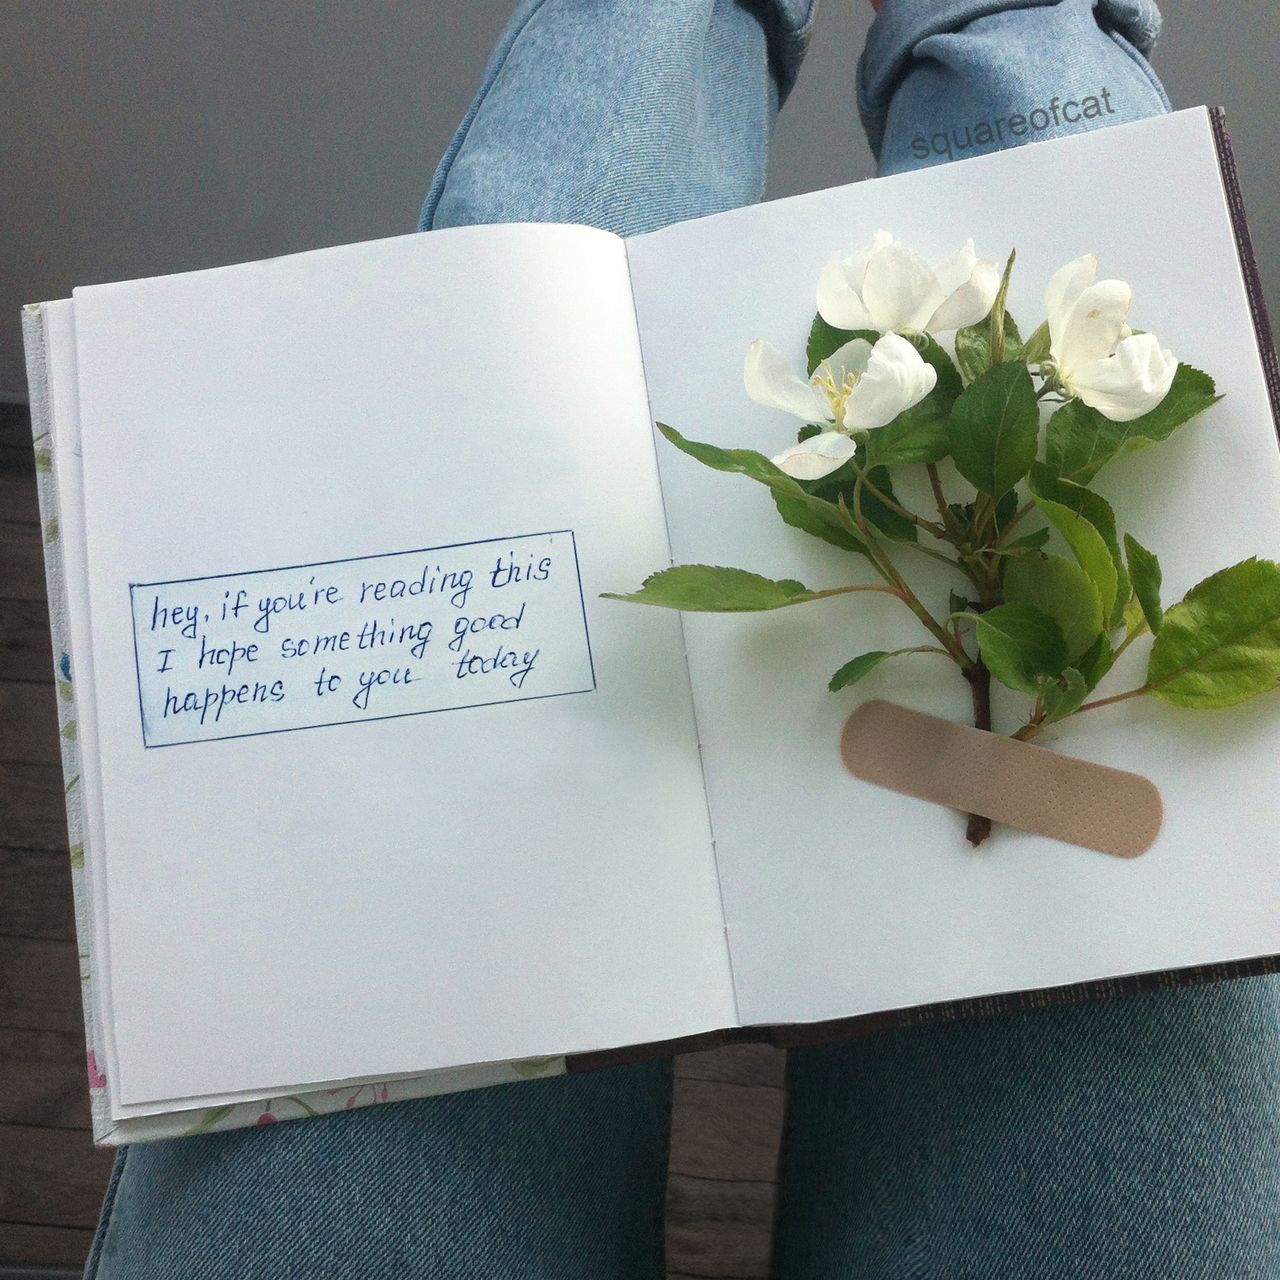 squareofcat
hey, if you're reading this
I hope something good
happens to you today